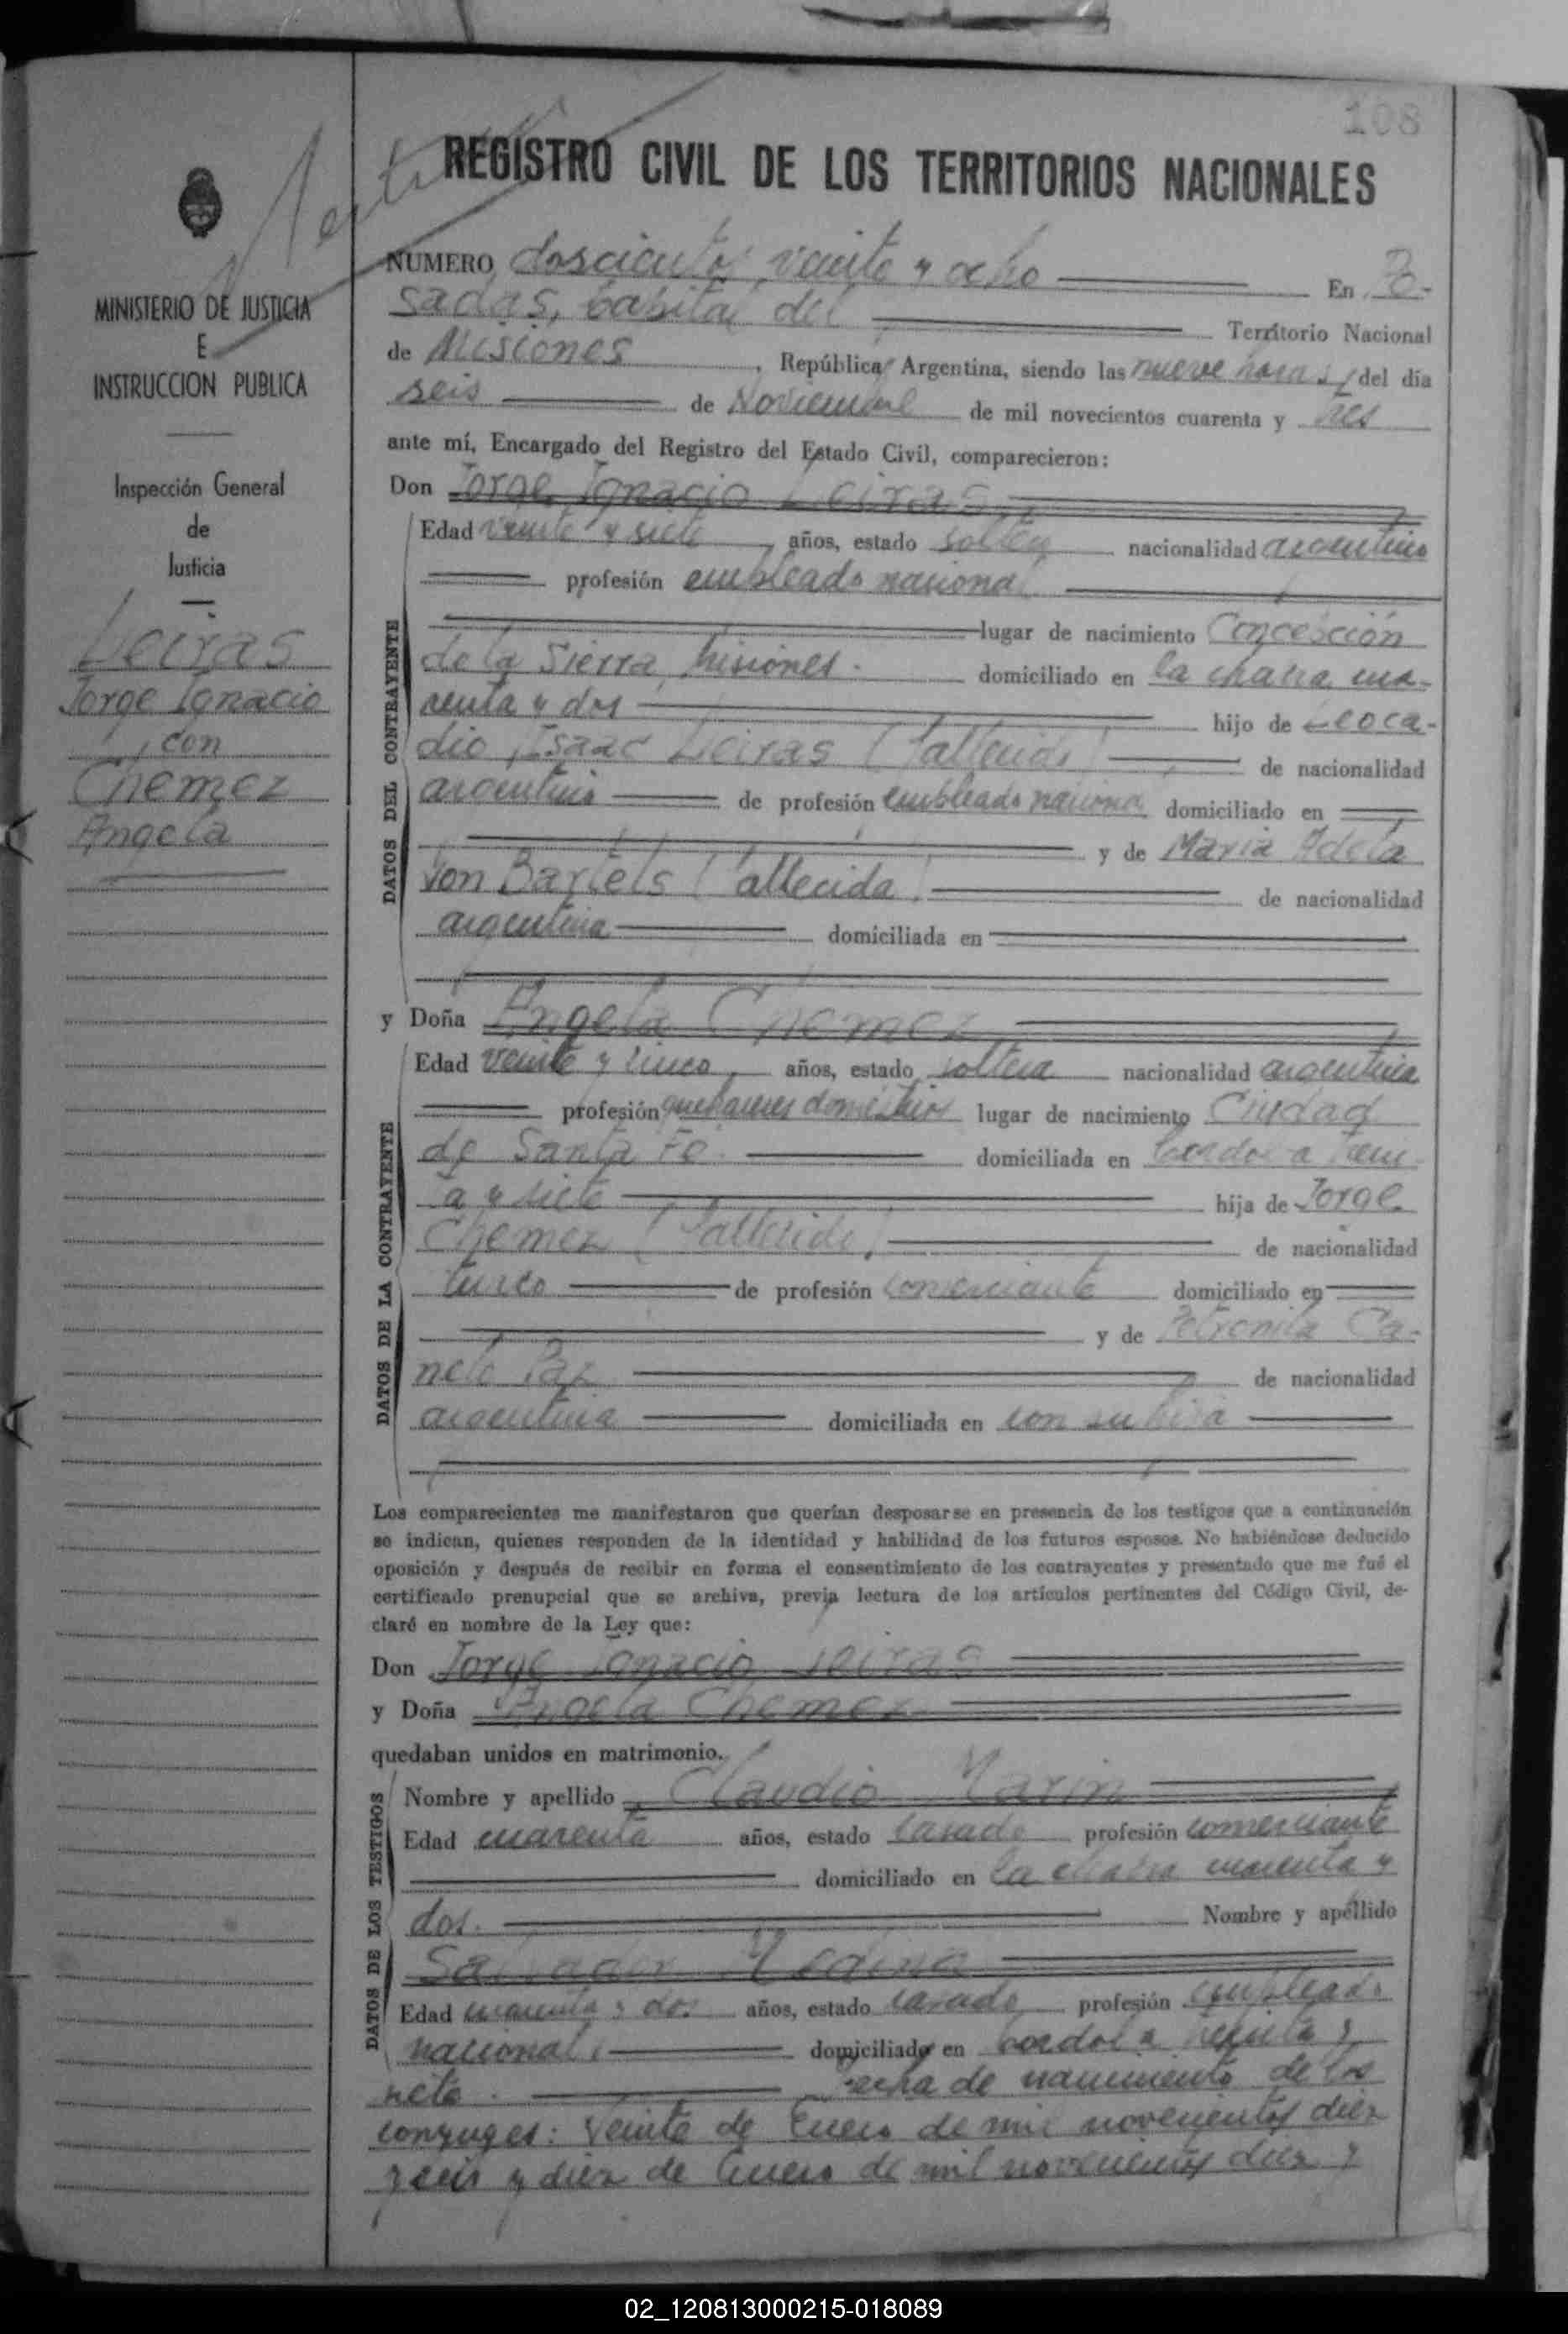 108
REGISTRO CIVIL DE LOS TERRITORIOS NACIONALES
MINISTERIO DE JUSTICIA
E
INSTRUCCION PUBLICA
Inspección General
de
Justicia
Leiras
Jorge Ignacio
con
Chemez
Angela
NUMERO doscientos veinte y ocho En Po-
sadas, Capital del Territorio Nacional
de Misiones, República Argentina, siendo las nueve horas, del día
seis de Noviembre de mil novecientos cuarenta y tres
ante mí, Encargado del Registro del Estado Civil, comparecieron:
Don Jorge Ignacio Leiras
DATOS DEL CONTRAYENTE
Edad veinte y siete años, estado soltero nacionalidad argentino
profesión empleado nacional
lugar de nacimiento Concepción
de la Sierra, Misiones. domiciliado en la chacra cua-
renta y dos hijo de Leoca-
dio Isaac Leiras (fallecido) de nacionalidad
argentino de profesión empleado nacional domiciliado en
y de María Adela
Von Bartels (fallecida) de nacionalidad
argentina domiciliada en
y Doña Angela Chemez
DATOS DE LA CONTRAYENTE
Edad veinte y cinco años, estado soltera nacionalidad argentina
profesión quehaceres domésticos lugar de nacimiento Ciudad
de Santa Fé. domiciliada en Cordoba trein-
ta y siete hija de Jorge
Chemez (fallecido) de nacionalidad
turco de profesión comerciante domiciliado en
y de Petronila Ca-
ñete Paz de nacionalidad
argentina domiciliada en con su hija
Los comparecientes me manifestaron que querían desposarse en presencia de los testigos que a continuación
se indican, quienes responden de la identidad y habilidad de los futuros esposos. No habiéndose deducido
oposición y después de recibir en forma el consentimiento de los contrayentes y presentado que me fué el
certificado prenupcial que se archiva, previa lectura de los artículos pertinentes del Código Civil, de-
claré en nombre de la Ley que:
Don Jorge Ignacio Leiras
y Doña Angela Chemez
quedaban unidos en matrimonio.
DATOS DE LOS TESTIGOS
Nombre y apellido Claudio Marin
Edad cuarenta años, estado casado profesión comerciante
domiciliado en la chacra cuarenta y
dos. Nombre y apellido
Salvador Medina
Edad cuarenta y dos años, estado casado profesión empleado
nacional, domiciliado en Cordoba treinta y
siete. Fecha de nacimiento de los
conyuges: veinte de Enero de mil novecientos diez
y seis y diez de Enero de mil novecientos diez y
02_120813000215-018089